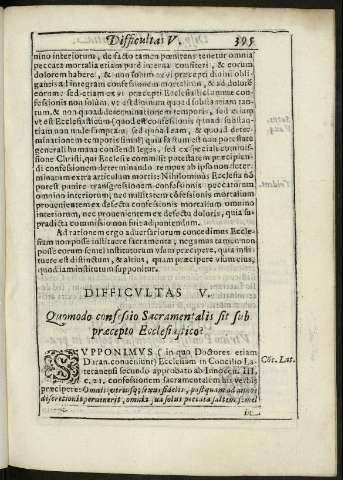 Difficultas V. 395
nino interiorum, de facto tamen pœnitens tenetur omnia
peccata mortalia etiam pure interna confiteri, & eorum
dolorem habere, & non solum ex vi præcepti divini obli-
gantis ad integram confessionem mortalium, & ad dolorē
eorum: sed etiam ex vi præcepti Ecclesiastici annuæ con-
fessionis non solum, ut est divinum quoad substantiam tan-
tum, & non quoad determinationem temporis, sed etiam
ut est Ecclesiasticum (quod est confessionis quoad substan-
tiam non nude sumptam, sed quoad eam, & quoad deter-
minationem temporis simul) quia factum est non potestate
generali humana condendi leges, sed ex speciali commis-
sione Christi, qui Ecclesiæ commisit potestatem præcipien-
di confessionem determinando tempus ab ipso non deter-
minatum extra articulum mortis: Nihilominus Ecclesia nō
potest punire transgressionem confessionis peccatorum
omnino interiorum, nec militestem cōfessionis mortalium
provenientem ex defectu confessionis mortalium omnino
interiorum, nec provenientem ex defectu doloris, quia su-
pradicta commissio non fuit ad puniendum.
Ad rationem ergo adversariorum concedimus Ecclesi-
siam non posse instituere sacramenta, negamus tamen non
posse eorum semel institutorum usum præcipere, quia insti-
tuere est distinctum, & altius, quam præcipere usum ejus,
quod jam institutum supponitur.
DIFFICULTAS V.
Quomodo confessio Sacramentalis sit sub
præcepto Ecclesiastico?
SUPPONIMUS (in quo Doctores etiam
Duran. conveniunt) Ecclesiam in Concilio La- Cōc. Lat.
teranensi secundo approbato ab Innocen. III.
c. 21. confessionem sacramentalem his verbis
præcipere: Omnis utriusque sexus fidelis, postquam ad annos
discretionis pervenerit, omnia sua solus peccata saltem semel
in